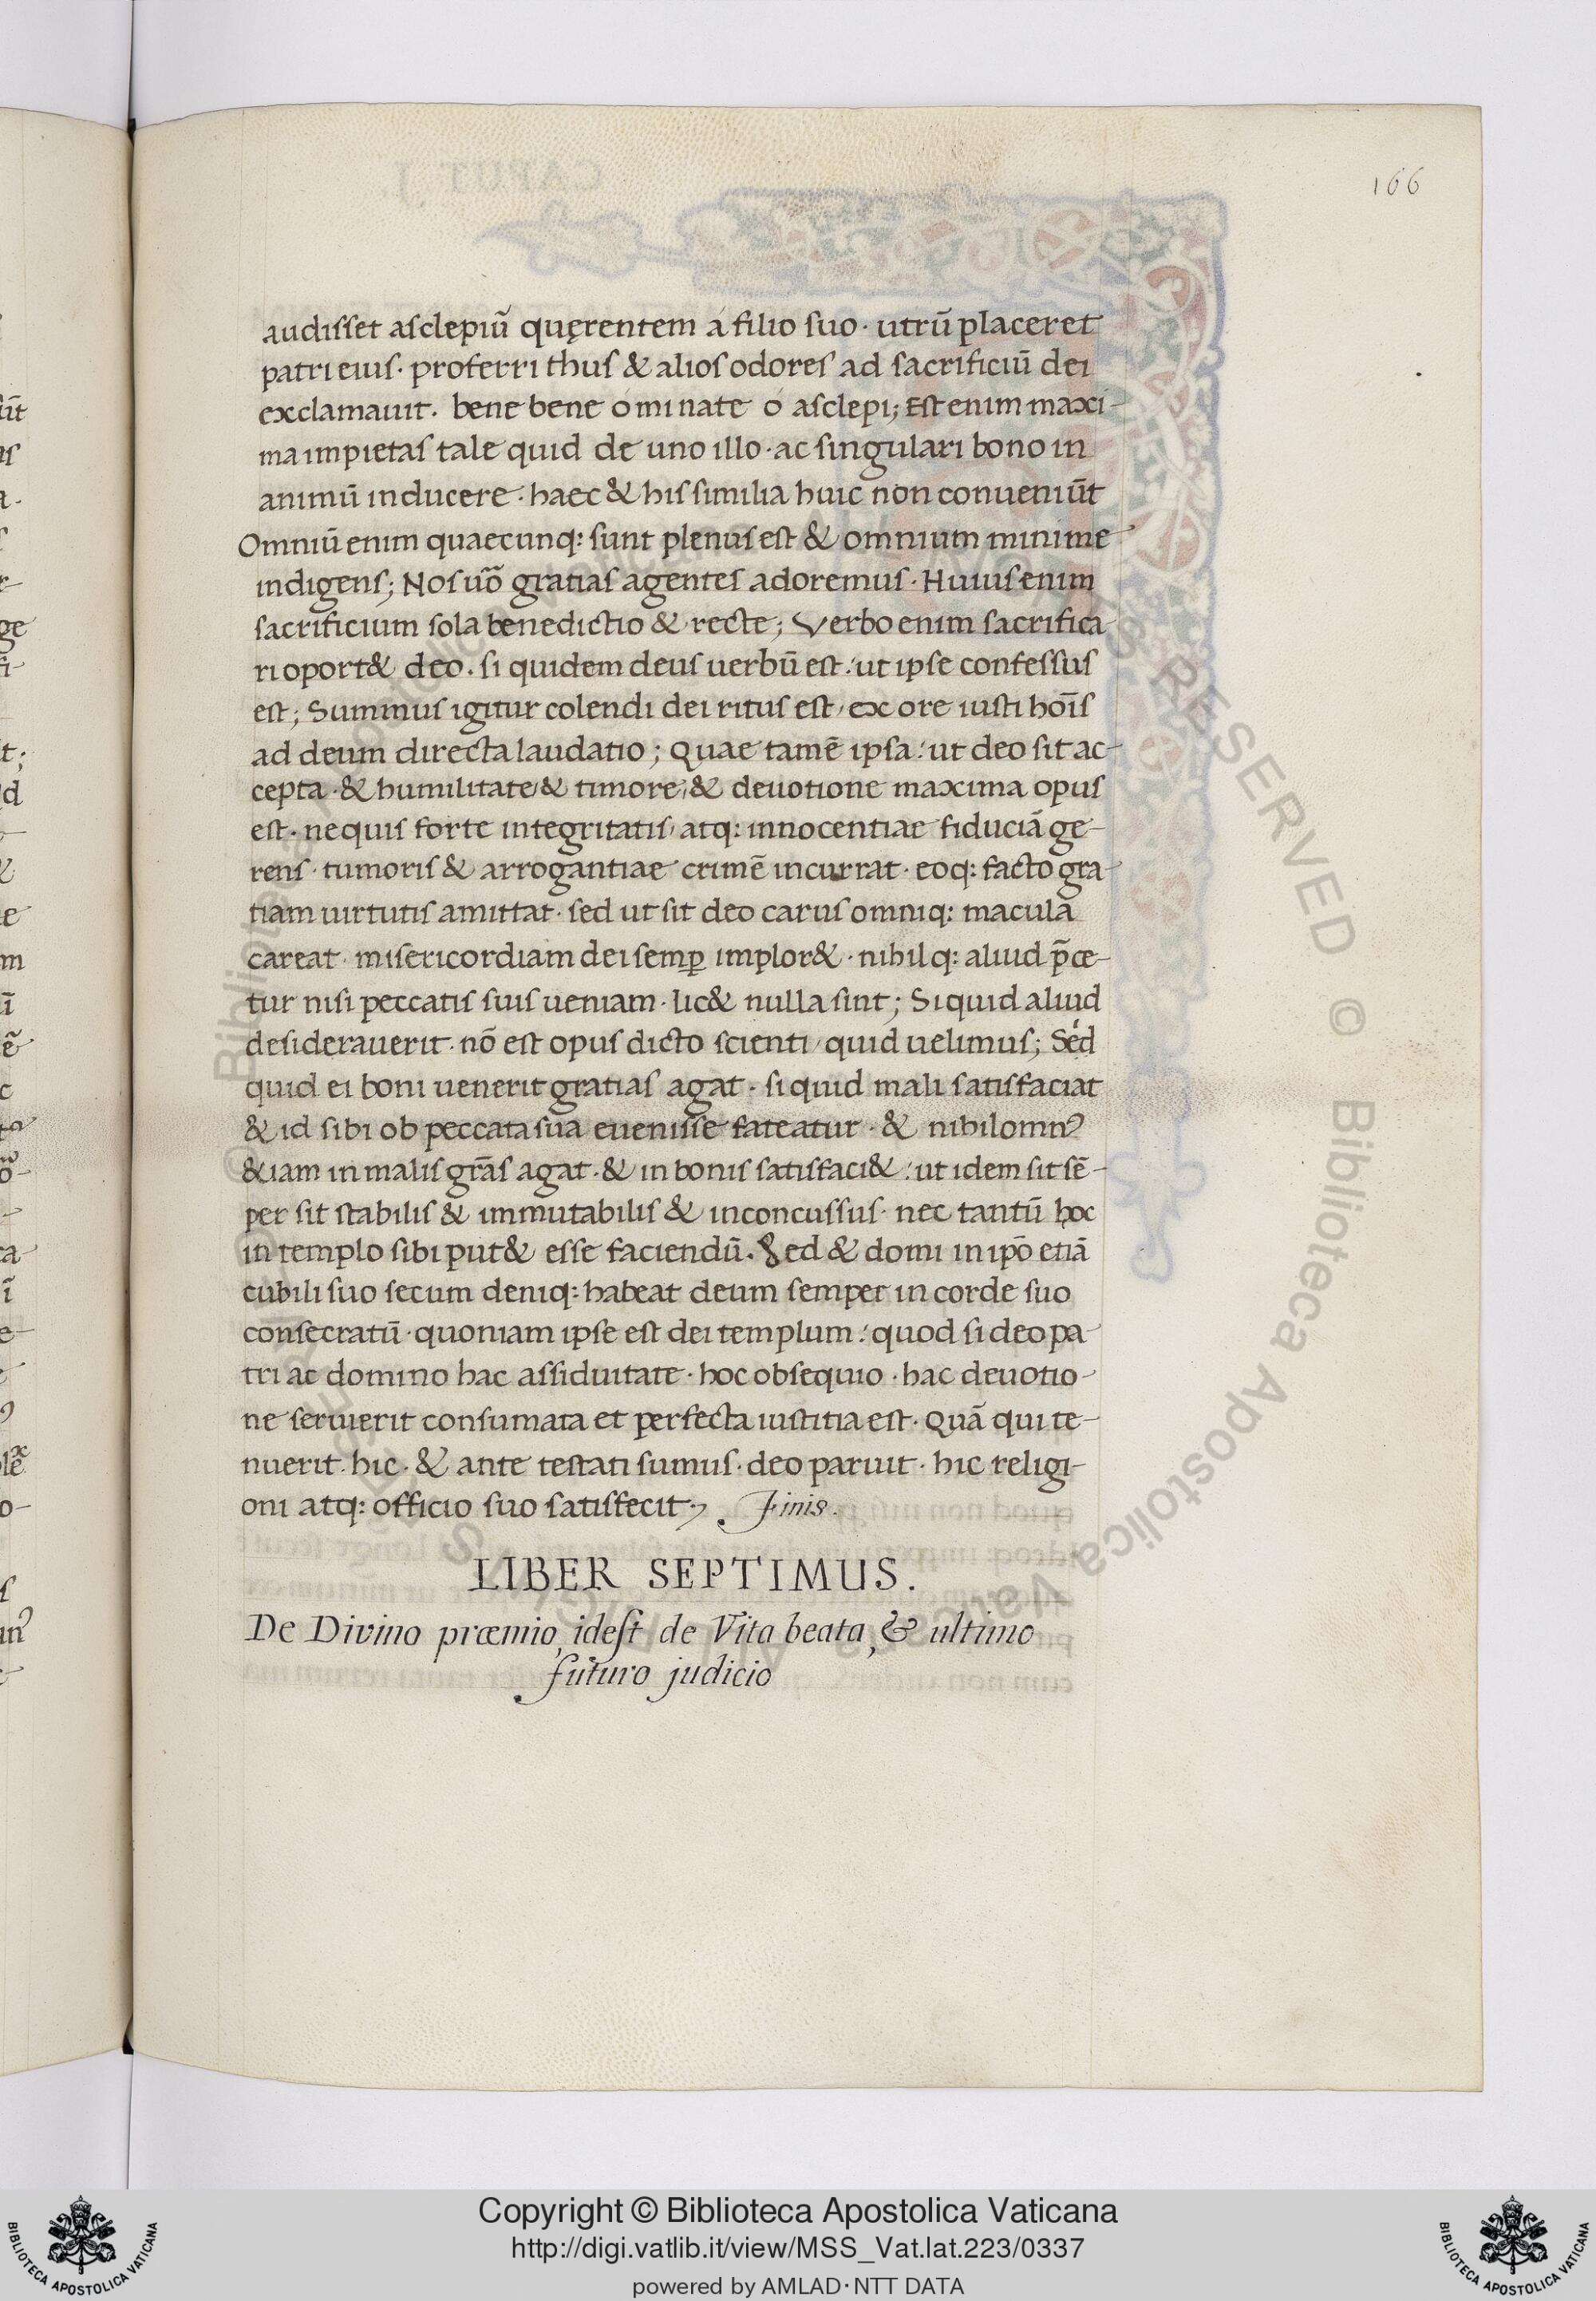 166
audisset asclepiū quęrentem á filio suo· utrū placeret
patri eius· proferri thus & alios odores ad sacrificiū dei
exclamauit. bene bene ominate ó asclepi; Est enim maxi-
ma impietas tale quid de uno illo· ac singulari bono in
animū inducere· haec & his similia huic non conueniūt
Omniū enim quaecunq: sunt plenus est & omnium minime
indigens; Nos uō gratias agentes adoremus· Huius enim
sacrificium sola benedictio & recte; Verbo enim sacrifica-
ri oport& deo. si quidem deus uerbū est: ut ipse confessus
est; Summus igitur colendi dei ritus est, ex ore iusti hoīs
ad deum directa laudatio; Quae tamē ipsa: ut deo sit ac-
cepta· & humilitate & timore, & deuotione maxima opus
est· ne quis forte integritatis, atq: innocentiae fiduciā ge-
rens· tumoris & arrogantiae crimē incurrat· eoq: facto gra-
tiam uirtutis amittat· sed ut sit deo carus omniq: macula
careat· misericordiam dei semꝑ implor&· nihilq: aliud p̄ce-
tur nisi peccatis suis ueniam· lic& nulla sint; Si quid aliud
desiderauerit· nō est opus dicto scienti, quid uelimus; Séd
quid ei boni uenerit gratias agat· si quid mali satisfaciat
& id sibi ob peccata sua euenisse fateatur· & nihilomnꝰ
&iam in malis gr̄as agat· & in bonis satisfaci&: ut idem sit sē-
per sit stabilis & immutabilis & inconcussus· nec tantū hoc
in templo sibi put& esse faciendū. Sed & domi in ip̄o etiā
cubili suo secum deniq: habeat deum semper in corde suo
consecratū· quoniam ipse est dei templum: quod si deo pa-
tri ac domino hac assiduitate· hoc obsequio· hac deuotio-
ne seruierit consumata et perfecta iustitia est· Quā qui te-
nuerit· hic· & ante testati sumus· deo paruit· hic religi-
oni atq: officio suo satisfecit; Finis.
LIBER SEPTIMUS.
De Divino præmio, idest de Vita beata, & ultimo
futuro judicio
Copyright © Biblioteca Apostolica Vaticana
http://digi.vatlib.it/view/MSS_Vat.lat.223/0337
powered by AMLAD·NTT DATA
BIBLIOTECA APOSTOLICA VATICANA
BIBLIOTECA APOSTOLICA VATICANA